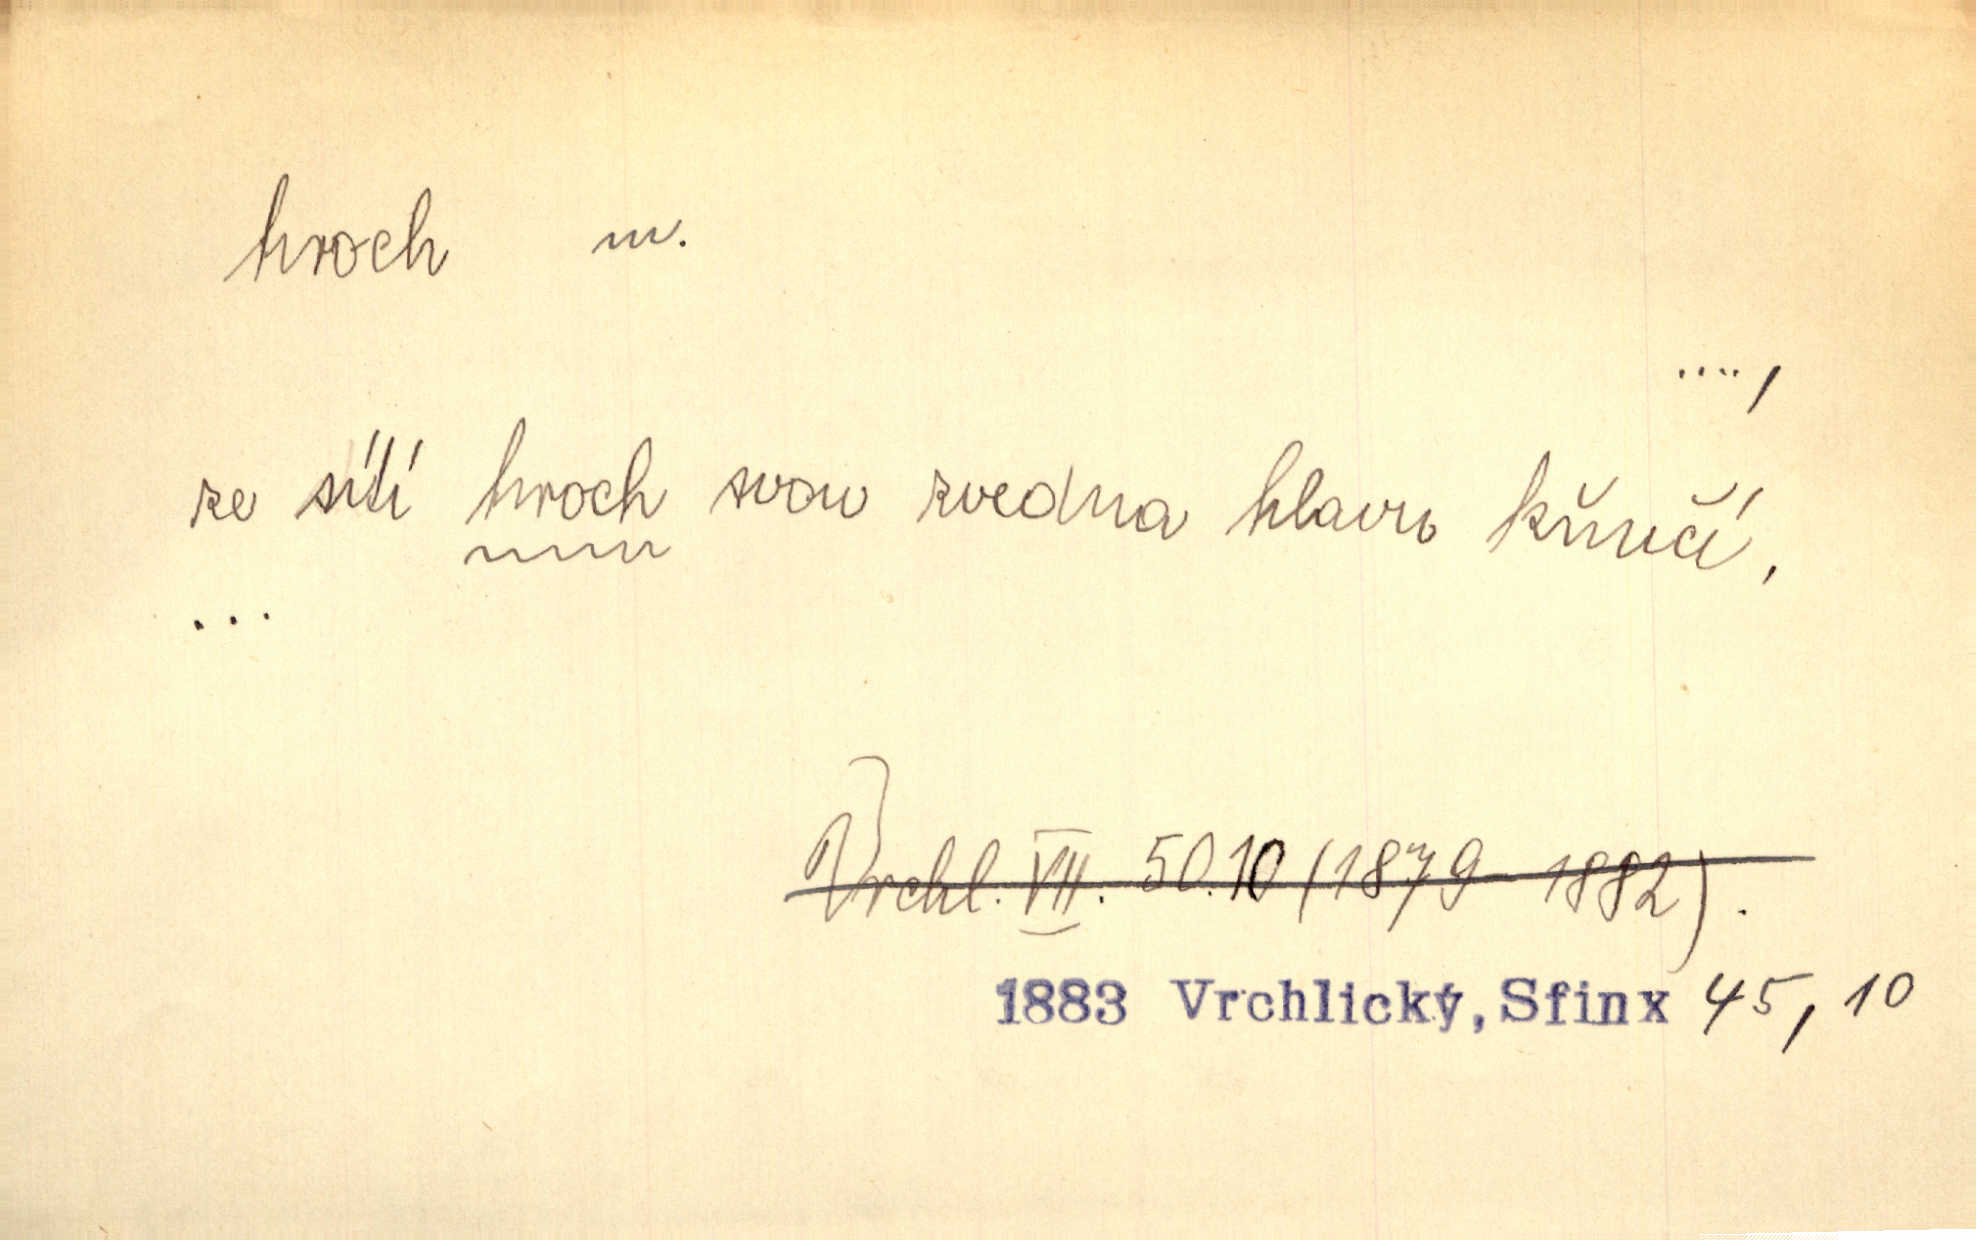 hroch m.
....,
ze sítí hroch svou zvedna hlavu křučí,
...
Vrchl. VII. 50.10 (1879–1882).
1883 Vrchlický, Sfinx 45, 10